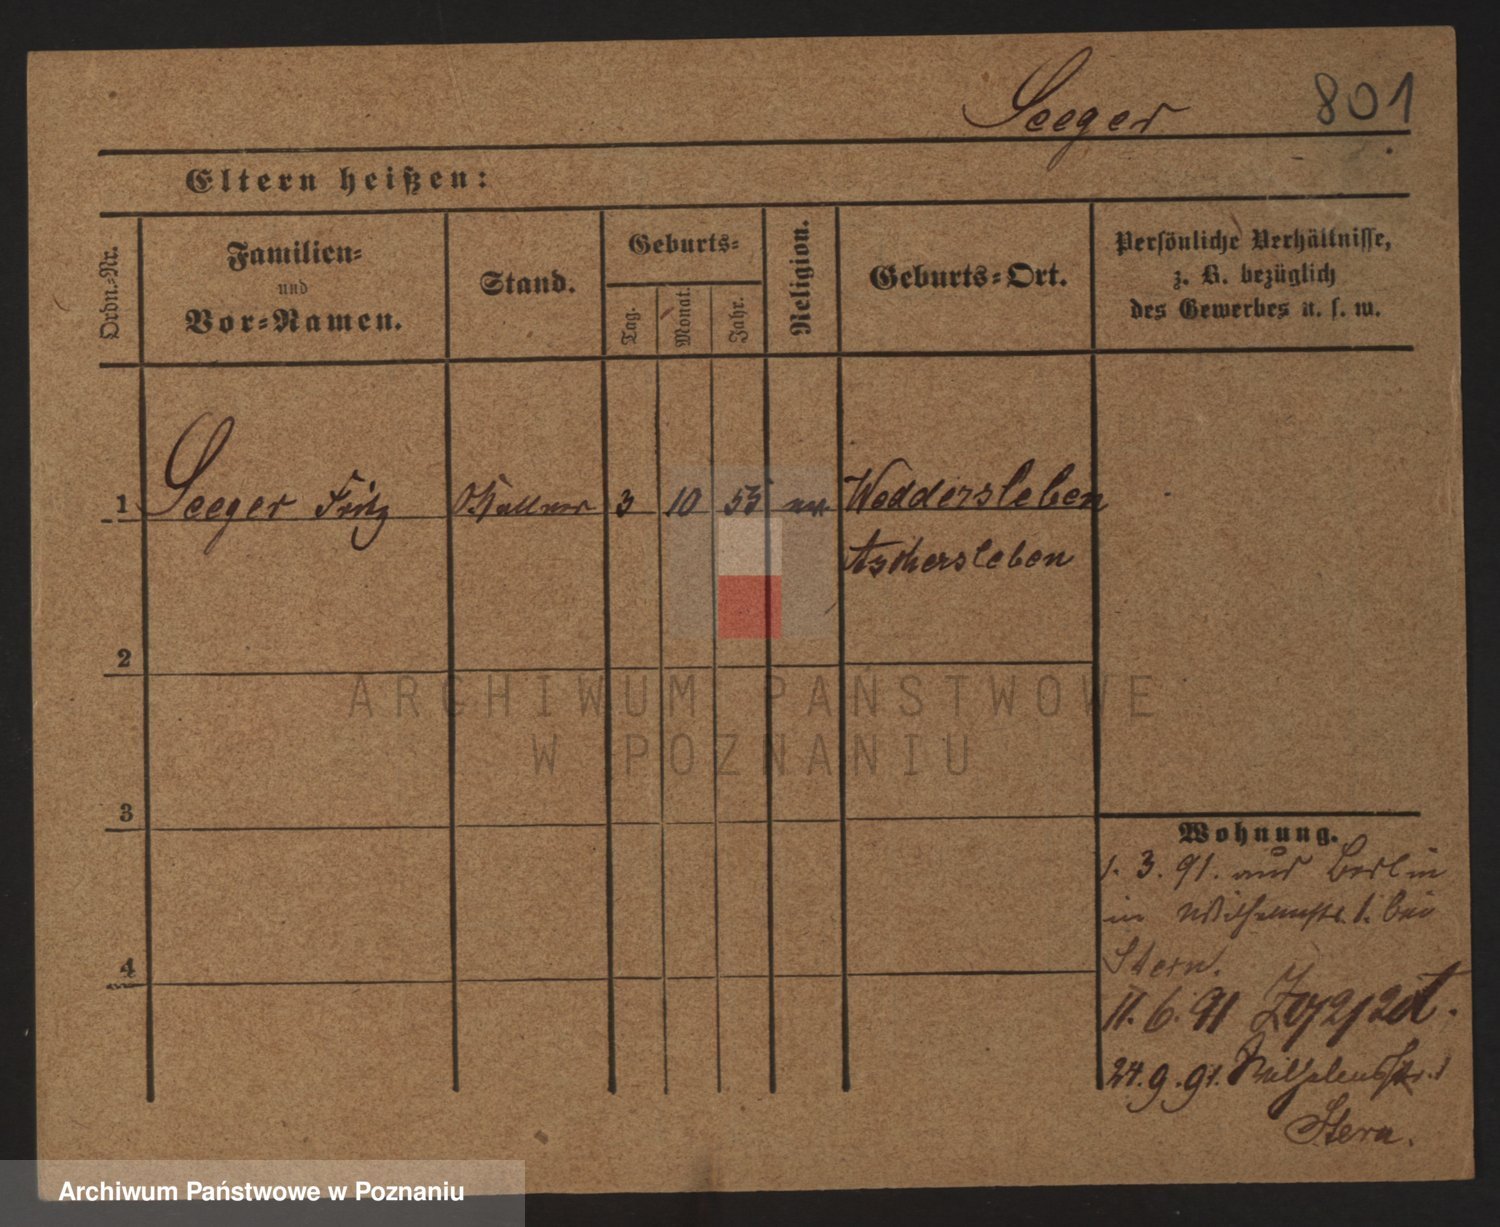 Seeger 801
Eltern heißen:
Ordn.-Nr.
Familien-
und
Vor-Namen.
Stand.
Geburts-
Tag.
Monat.
Jahr.
Religion.
Geburts-Ort.
Persönliche Verhältnisse,
z. B. bezüglich
des Gewerbes u. s. w.
1 Seeger Fritz 3 10 53 ev. Weddersleben
Aschersleben
2
3
4
Wohnung.
1. 3. 91. aus Berlin
in Wilhelmstr. 1. bei
Stern.
11. 6. 91
24. 9. 91. Wilhelmstr. 1
Stern.
ARCHIWUM PAŃSTWOWE
W POZNANIU
Archiwum Państwowe w Poznaniu